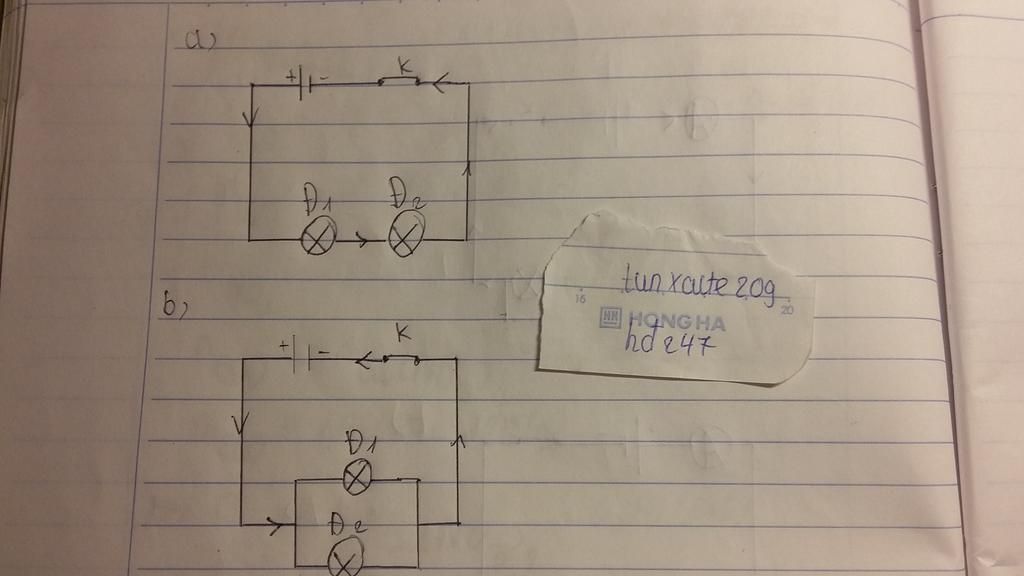 a,
+ -
K
Đ1
Đ2
b,
+ -
K
Đ1
Đ2
tunxaute20g
16
20
HH HONG HA
hd 247